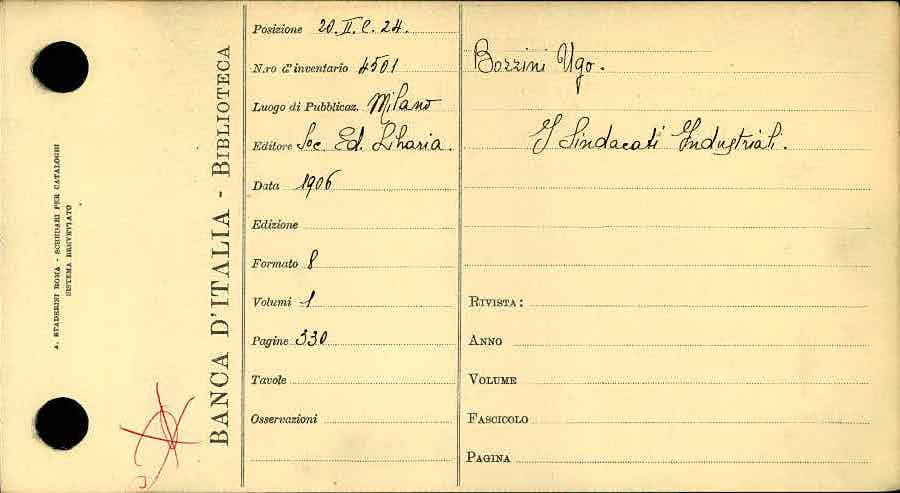 A. STADERINI ROMA - SCHEDARI PER CATALOGHI
SISTEMA BREVETTATO
BANCA D'ITALIA - BIBLIOTECA
Posizione 20. II. C. 24.
N.ro d'inventario 4501
Luogo di Pubblicaz. Milano
Editore Soc. Ed. Libraria.
Data 1906
Edizione
Formato 8
Volumi 1
Pagine 330
Tavole
Osservazioni
Bozzini Ugo.
I Sindacati Industriali.
RIVISTA:
ANNO
VOLUME
FASCICOLO
PAGINA